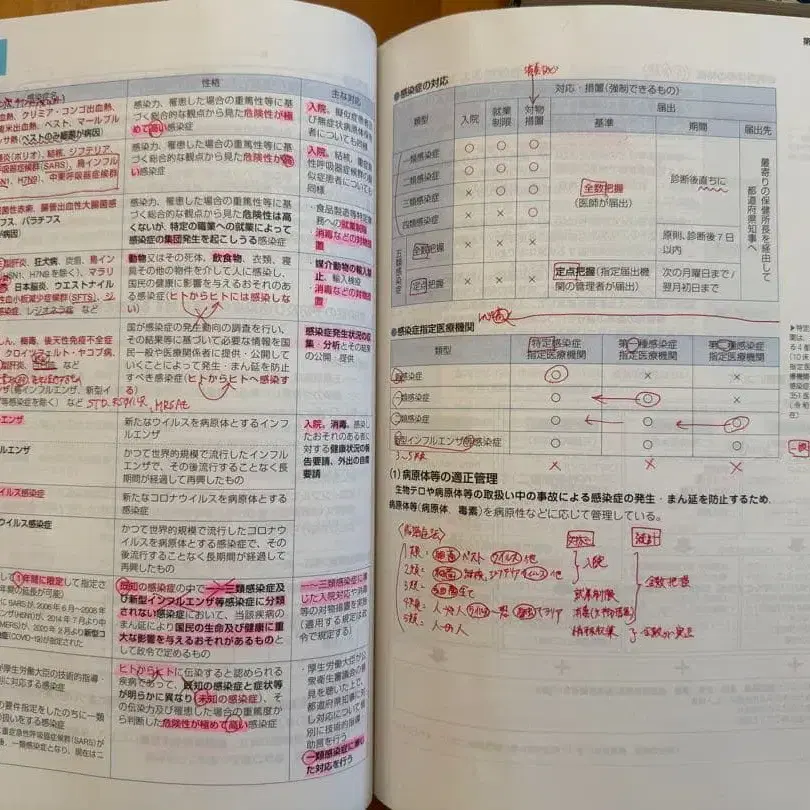 感染症名
性格
主な対応
血熱、クリミア・コンゴ出血熱、
南米出血熱、ペスト、マールブル
ッサ熱(ペストのみ細菌が病因)
感染力、罹患した場合の重篤性等に基
づく総合的な観点から見た危険性が極
めて高い感染症
入院、
も同様
炎(ポリオ)、結核、ジフテリア、
呼吸器症候群(SARS)、鳥インフル
N1、H7N9)、中東呼吸器症候群
感染力、罹患した場合の重篤性等に基
づく総合的な観点から見た危険性が高
い感染症
入院、
同様
菌性赤痢、腸管出血性大腸菌感
フス、パラチフス
が病因)
感染力、罹患した場合の重篤性等に基
づく総合的な観点から見た危険性は高
くないが、特定の職業への就業によって
感染症の集団発生を起こしうる感染症
・食品製造等特定
務への就業制限
・消毒などの対物措
置
型肝炎、狂犬病、炭疽、鳥イン
H5N1、H7N9を除く)、マラリ
日本脳炎、ウエストナイル
血小板減少症候群(SFTS)、ジ
感染症、レジオネラ症 など
動物又はその死体、飲食物、衣類、寝
具その他の物件を介して人に感染し、
国民の健康に影響を与えるおそれのあ
る感染症(ヒトからヒトには感染しな
い)
・媒介動物の輸入禁
止、輸入検疫
・消毒などの対物措
置
しん、梅毒、後天性免疫不全症
クロイツフェルト・ヤコブ病、
型肝炎、
など
ザ(鳥インフルエンザ、新型イ
等感染症を除く) など
国が感染症の発生動向の調査を行い、
その結果等に基づいて必要な情報を国
民一般や医療関係者に提供・公開して
いくことによって発生・まん延を防止
すべき感染症(ヒトからヒトへ感染す
る)
感染症発生状況の収
集・分析とその結果
の公開・提供
MRSAなど
エンザ
新たなウイルスを病原体とするインフ
ルエンザ
入院、消毒、感染し
たおそれのある者に
対する健康状況の報
告要請、外出の自粛
要請
ルエンザ
かつて世界的規模で流行したインフル
エンザで、その後流行することなく長
期間が経過して再興したもの
イルス感染症
新たなコロナウイルスを病原体とする
感染症
ウイルス感染症
かつて世界的規模で流行したコロナウ
イルスを病原体とする感染症で、その
後流行することなく長期間が経過して
再興したもの
して1年間に限定して指定さ
年間の延長が可能)
SARSが、2006年6月〜2008年
N1)が、2014年7月より中
MERS)が、2020年2月より新型コ
(COVID-19)が指定された
既知の感染症の中で一〜三類感染症及
び新型インフルエンザ等感染症に分類
されない感染症において、当該疾病の
まん延により国民の生命及び健康に重
大な影響を与えるおそれがあるものと
して政令で定めるもの
一〜三類感染症に準
じた入院対応や消毒
等の対物措置を実施
(適用する規定は政
令で規定する)
が厚生労働大臣の技術的指導・
別に対応する感染症
の要件指定をしたのちに一類
扱いをする感染症
症急性呼吸器症候群(SARS)が
後、一類感染症となり、現在は二
ヒトからヒトに伝染すると認められる
疾病であって、既知の感染症と症状等
が明らかに異なり(未知の感染症)、そ
の伝染力及び罹患した場合の重篤度か
ら判断した危険性が極めて高い感染症
・厚生労働大臣が公
衆衛生審議会の意
見を聴いた上で、
都道府県知事に対
し対応について個
別に技術的指導・
助言を行う
・一類感染症に準じ
た対応を行う
第
●感染症の対応
類型
対応・措置(強制できるもの)
入院
就業
制限
対物
措置
届出
基準
期間
届出先
一類感染症
○
○
○
二類感染症
○
○
○
三類感染症
×
○
○
四類感染症
×
×
○
五類感染症
全数把握
×
×
×
定点把握
×
×
×
全数把握
(医師が届出)
診断後直ちに
原則、診断後7日
以内
定点把握(指定届出機
関の管理者が届出)
次の月曜日まで/
翌月初日まで
最寄りの保健所長を経由して
都道府県知事へ
●感染症指定医療機関
類型
特定感染症
指定医療機関
第一種感染症
指定医療機関
第二種感染症
指定医療機関
新感染症
○
×
×
一類感染症
○
○
×
二類感染症
○
○
○
新型インフルエンザ等感染症
○
○
○
3〜5類
×
×
×
(1) 病原体等の適正管理
生物テロや病原体等の取扱い中の事故による感染症の発生・まん延を防止するため、
病原体等(病原体、毒素)を病原性などに応じて管理している。
対応
1類: 細菌 ペスト ウイルス 他
入院
2類: 細菌 結核、ジフテリア ウイルス 他
全数把握
3類: 細菌 全て
就業制限
4類:
消毒(対物措置)
5類: 人→人
情報収集